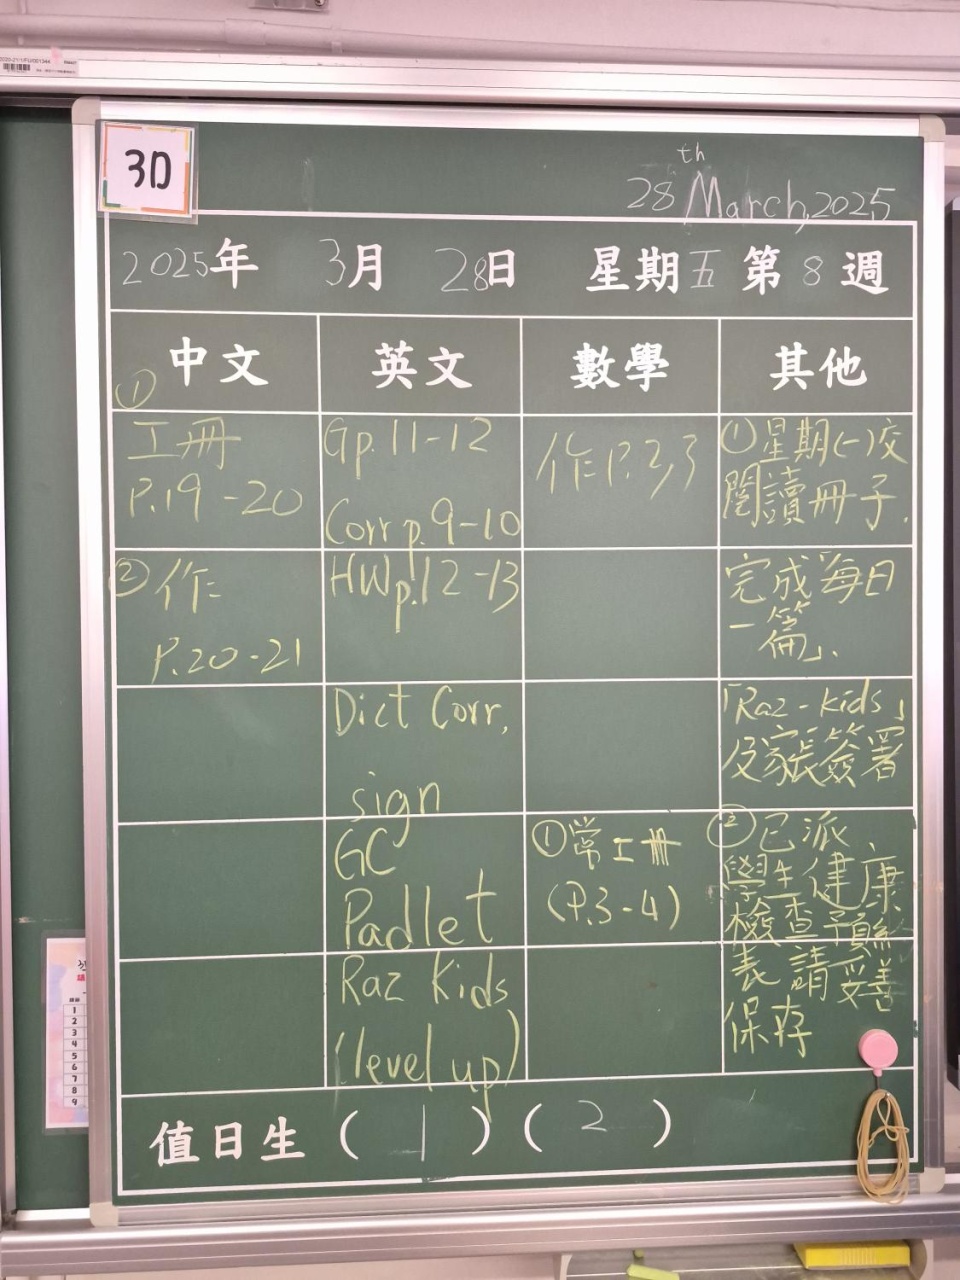 3D
28th March, 2025
2025年 3月 28日 星期五 第8週
中文 英文 數學 其他
①
工冊
P.19-20
②作
P.20-21
Gp.11-12
Corr p.9-10
HWp.12-13
Dict Corr,
sign
GC
Padlet
Raz Kids
(level up)
作P.2,3
①常工冊
(P.3-4)
①星期(一)交
閱讀冊子.
完成「每日
一篇」.
「Raz-kids」
及家長簽署
②已派
學生健康
檢查預約
表 請妥善
保存
值日生 ( 1 ) ( 2 )
1
2
3
4
5
6
7
8
9